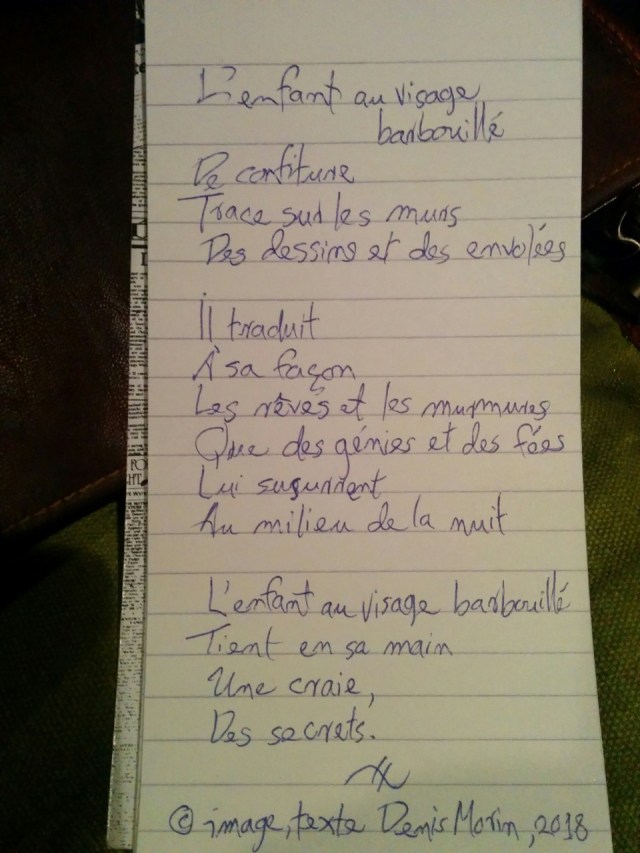 L'enfant au visage
barbouillé
De confiture
Trace sur les murs
Des dessins et des envolées
Il traduit
À sa façon
Les rêves et les murmures
Que des génies et des fées
Lui susurrent
Au milieu de la nuit
L'enfant au visage barbouillé
Tient en sa main
Une craie,
Des secrets.
© image, texte Denis Morin, 2018